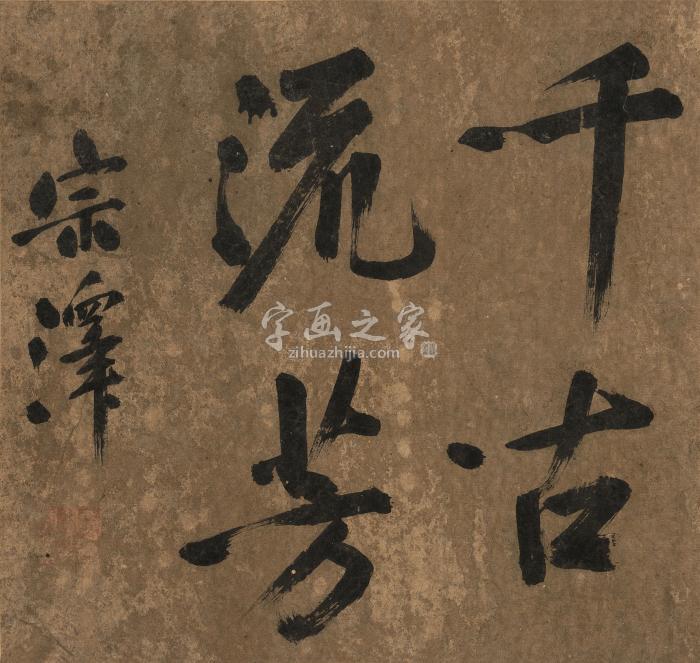 千古
流芳
宗澤
字画之家
zihuazhijia.com